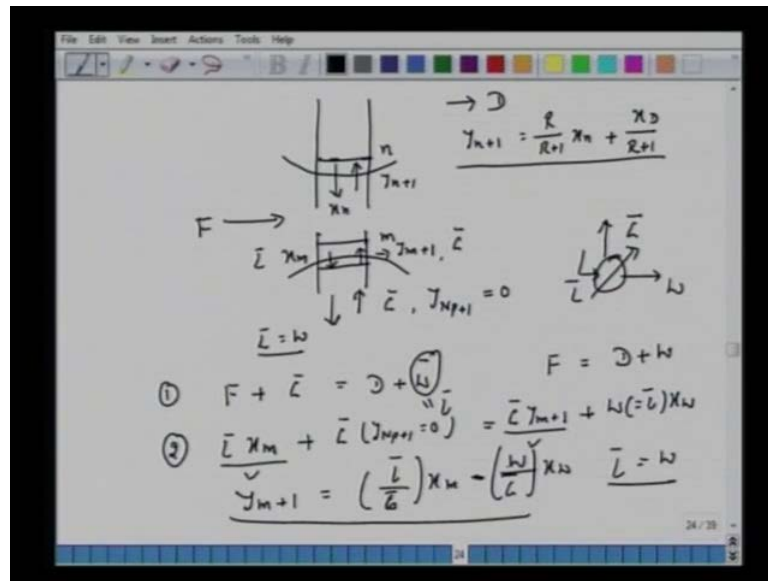 File Edit View Insert Actions Tools Help
→ D
y_{n+1} = \frac{R}{R+1} x_n + \frac{x_D}{R+1}
n
y_{n+1}
x_n
F →
L̄ x_m
m
y_{m+1}, Ḡ
Ḡ, y_{Np+1} = 0
Ḡ
L̄
W
L̄ = W
F = D + W
① F + Ḡ = D + W
" L̄
② L̄ x_m + Ḡ (y_{Np+1} = 0) = Ḡ y_{m+1} + W (= L̄) x_W
y_{m+1} = (\frac{L̄}{Ḡ}) x_m - (\frac{W}{Ḡ}) x_W
L̄ = W
24/39
24